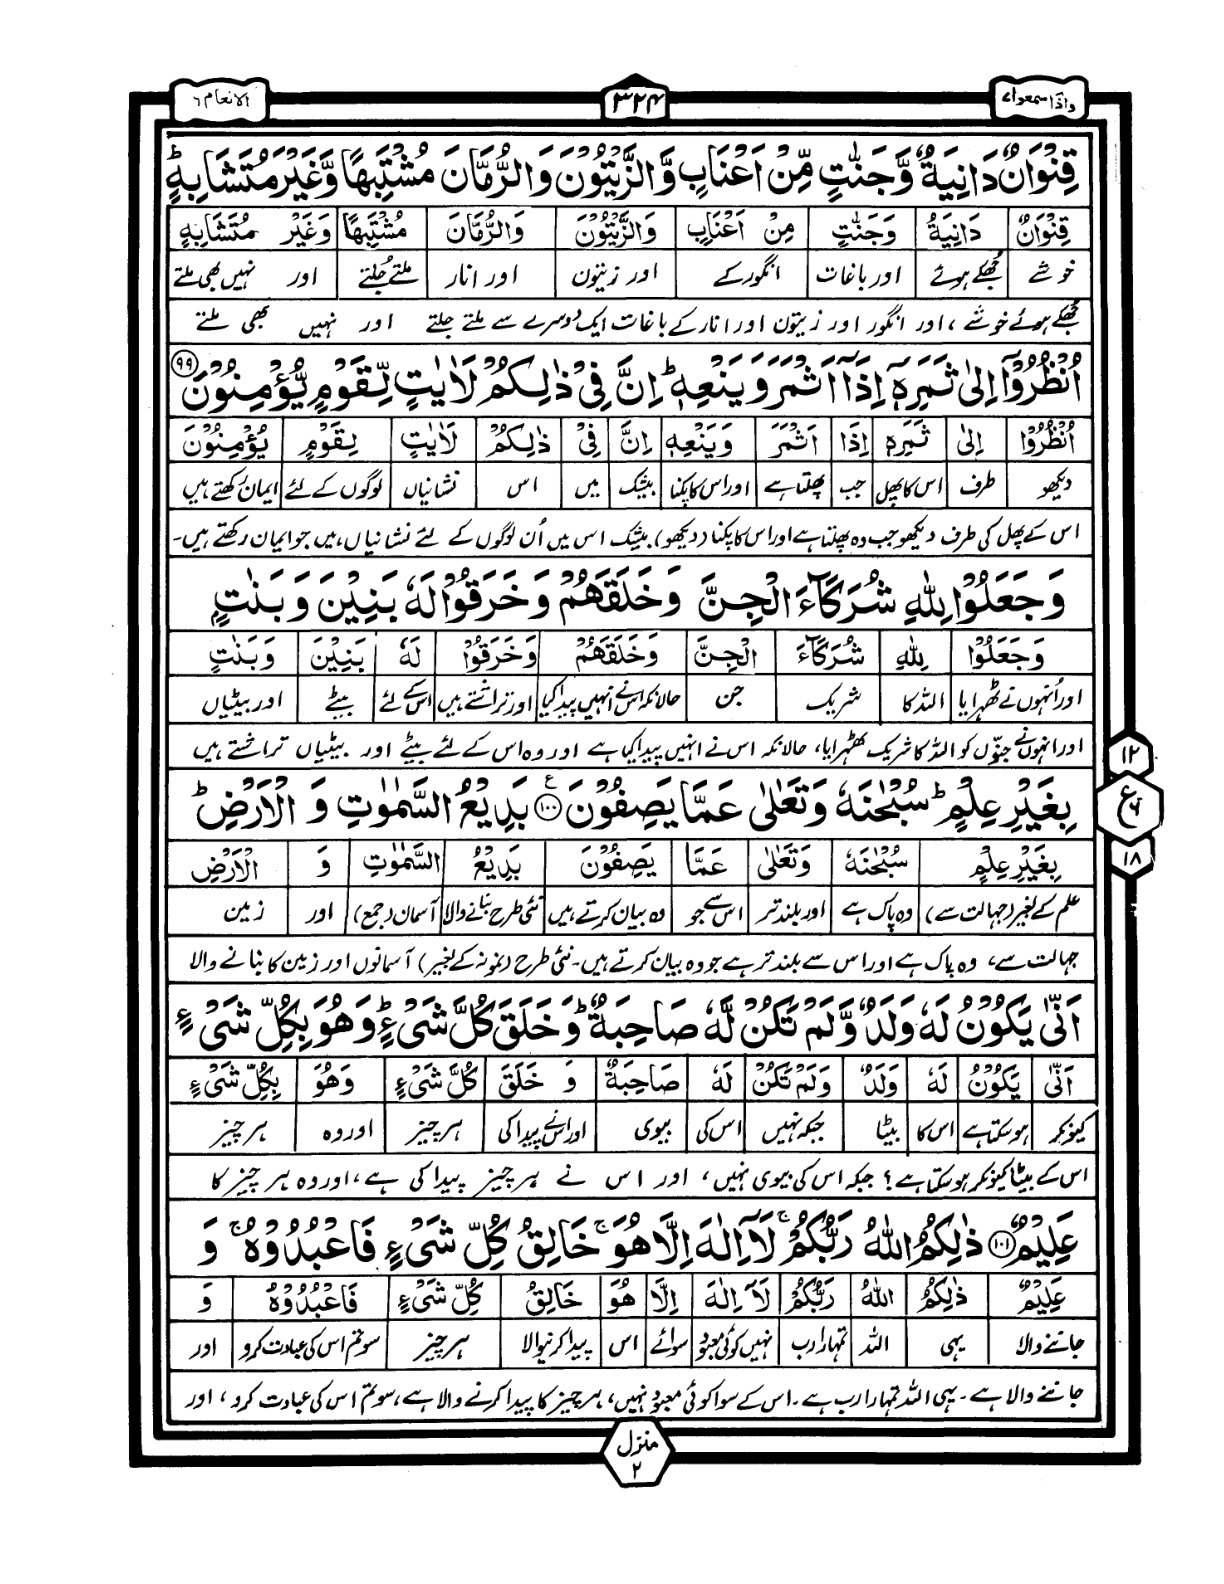 واذا سمعوا ۷
۳۲۴
الانعام ٦
قِنْوَانٌ دَانِيَةٌ وَّجَنّٰتٍ مِّنْ اَعْنَابٍ وَّالزَّيْتُوْنَ وَالرُّمَّانَ مُشْتَبِهًا وَّغَيْرَ مُتَشَابِهٍ ؕ
قِنْوَانٌ دَانِيَةٌ وَجَنّٰتٍ مِنْ اَعْنَابٍ وَالزَّيْتُوْنَ وَالرُّمَّانَ مُشْتَبِهًا وَغَيْرَ مُتَشَابِهٍ
خوشے جھکے ہوئے اور باغات انگور کے اور زیتون اور انار ملتے جلتے اور نہیں بھی ملتے
جھکے ہوئے خوشے ، اور انگور اور زیتون اور انار کے باغات ایک دوسرے سے ملتے جلتے اور نہیں بھی ملتے
اُنْظُرُوْٓا اِلٰى ثَمَرِهٖٓ اِذَآ اَثْمَرَ وَيَنْعِهٖ ؕ اِنَّ فِيْ ذٰلِكُمْ لَاٰيٰتٍ لِّقَوْمٍ يُّؤْمِنُوْنَ ۹۹
اُنْظُرُوْا اِلٰى ثَمَرِهٖ اِذَا اَثْمَرَ وَيَنْعِهٖ اِنَّ فِيْ ذٰلِكُمْ لَاٰيٰتٍ لِقَوْمٍ يُؤْمِنُوْنَ
دیکھو طرف اس کا پھل جب پھلتا ہے اور اس کا پکنا بیشک میں اس نشانیاں لوگوں کے لئے ایمان رکھتے ہیں
اس کے پھل کی طرف دیکھو جب وہ پھلتا ہے اور اس کا پکنا (دیکھو) بیشک اس میں اُن لوگوں کے لئے نشانیاں ہیں جو ایمان رکھتے ہیں۔
وَجَعَلُوْا لِلّٰهِ شُرَكَآءَ الْجِنَّ وَخَلَقَهُمْ وَخَرَقُوْا لَهٗ بَنِيْنَ وَبَنٰتٍۢ
وَجَعَلُوْا لِلّٰهِ شُرَكَآءَ الْجِنَّ وَخَلَقَهُمْ وَخَرَقُوْا لَهٗ بَنِيْنَ وَبَنٰتٍ
اور اُنہوں نے ٹھہرایا اللہ کا شریک جن حالانکہ اس نے انہیں پیدا کیا اور تراشتے ہیں اس کے لئے بیٹے اور بیٹیاں
اور انہوں نے جنّوں کو اللہ کا شریک ٹھہرایا، حالانکہ اس نے انہیں پیدا کیا ہے اور وہ اس کے لئے بیٹے اور بیٹیاں تراشتے ہیں
۱۲
ع
۱۸
بِغَيْرِ عِلْمٍ ؕ سُبْحٰنَهٗ وَتَعٰلٰى عَمَّا يَصِفُوْنَ ۱۰۰ ع بَدِيْعُ السَّمٰوٰتِ وَ الْاَرْضِ ؕ
بِغَيْرِ عِلْمٍ سُبْحٰنَهٗ وَتَعٰلٰى عَمَّا يَصِفُوْنَ بَدِيْعُ السَّمٰوٰتِ وَ الْاَرْضِ
علم کے بغیر (جہالت سے) وہ پاک ہے اور بلند تر اس سے جو وہ بیان کرتے ہیں نئی طرح بنانے والا آسمان (جمع) اور زمین
جہالت سے، وہ پاک ہے اور اس سے بلند تر ہے جو وہ بیان کرتے ہیں۔ نئی طرح (نمونہ کے بغیر) آسمانوں اور زمین کا بنانے والا
اَنّٰى يَكُوْنُ لَهٗ وَلَدٌ وَّلَمْ تَكُنْ لَّهٗ صَاحِبَةٌ ؕ وَخَلَقَ كُلَّ شَيْءٍ ۚ وَهُوَ بِكُلِّ شَيْءٍ
اَنّٰى يَكُوْنُ لَهٗ وَلَدٌ وَلَمْ تَكُنْ لَهٗ صَاحِبَةٌ وَ خَلَقَ كُلَّ شَيْءٍ وَهُوَ بِكُلِّ شَيْءٍ
کیونکر ہوسکتا ہے اس کا بیٹا جبکہ نہیں اس کی بیوی اور اس نے پیدا کی ہر چیز اور وہ ہر چیز
اس کے بیٹا کیونکر ہوسکتا ہے؟ جبکہ اس کی بیوی نہیں، اور اس نے ہر چیز پیدا کی ہے، اور وہ ہر چیز کا
عَلِيْمٌ ۱۰۱ ذٰلِكُمُ اللّٰهُ رَبُّكُمْ ۚ لَآ اِلٰهَ اِلَّا هُوَ ۚ خَالِقُ كُلِّ شَيْءٍ فَاعْبُدُوْهُ ۚ وَ
عَلِيْمٌ ذٰلِكُمُ اللّٰهُ رَبُّكُمْ لَآ اِلٰهَ اِلَّا هُوَ خَالِقُ كُلِّ شَيْءٍ فَاعْبُدُوْهُ وَ
جاننے والا یہی اللہ تمہارا رب نہیں کوئی معبود سوائے اس پیدا کرنیوالا ہر چیز سو تم اس کی عبادت کرو اور
جاننے والا ہے۔ یہی اللہ تمہارا رب ہے۔ اس کے سوا کوئی معبود نہیں، ہر چیز کا پیدا کرنے والا ہے، سو تم اس کی عبادت کرو ، اور
منزل
۲